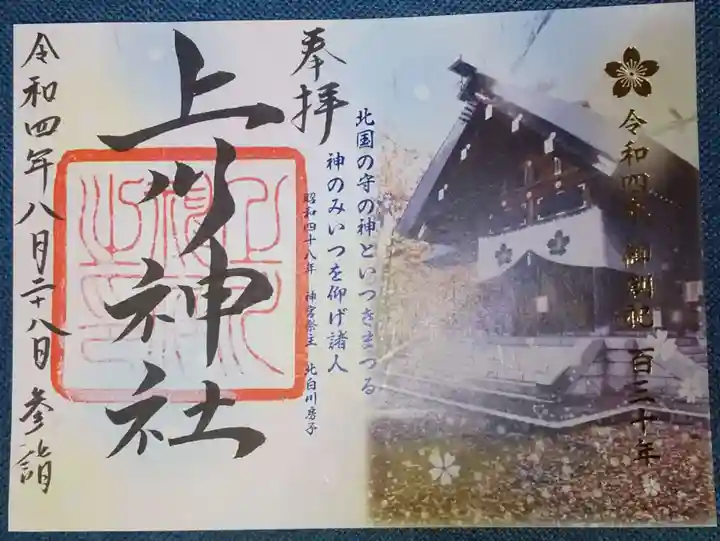 令和四年 御鎮祀 百三十年
北国の守の神といつきまつる
神のみいつを仰げ諸人
昭和四十八年 神宮祭主 北白川房子
奉拝
上川神社
令和四年八月二十八日 参詣